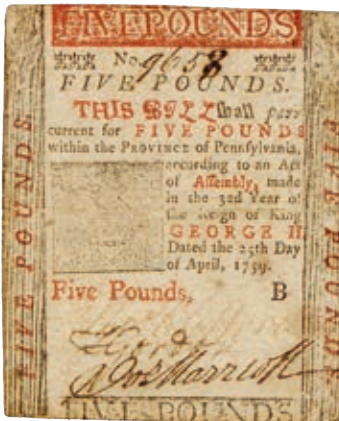 FIVE POUNDS
No. 9658
FIVE POUNDS.
THIS BILL shall pass
current for FIVE POUNDS
within the PROVINCE of Pennſylvania,
according to an Act
of Aſſembly, made
in the 32d Year of
the Reign of King
GEORGE II.
Dated the 25th Day
of April, 1759.
Five Pounds, B
FIVE POUNDS
FIVE POUNDS
FIVE POUNDS